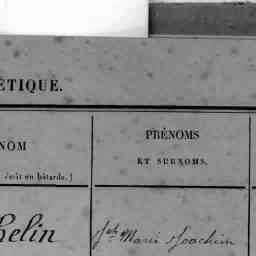 ÉTIQUE.
NOM
PRÉNOMS
ET SURNOMS.
écrit en bâtarde.)
helin
Jph Marie Joachim